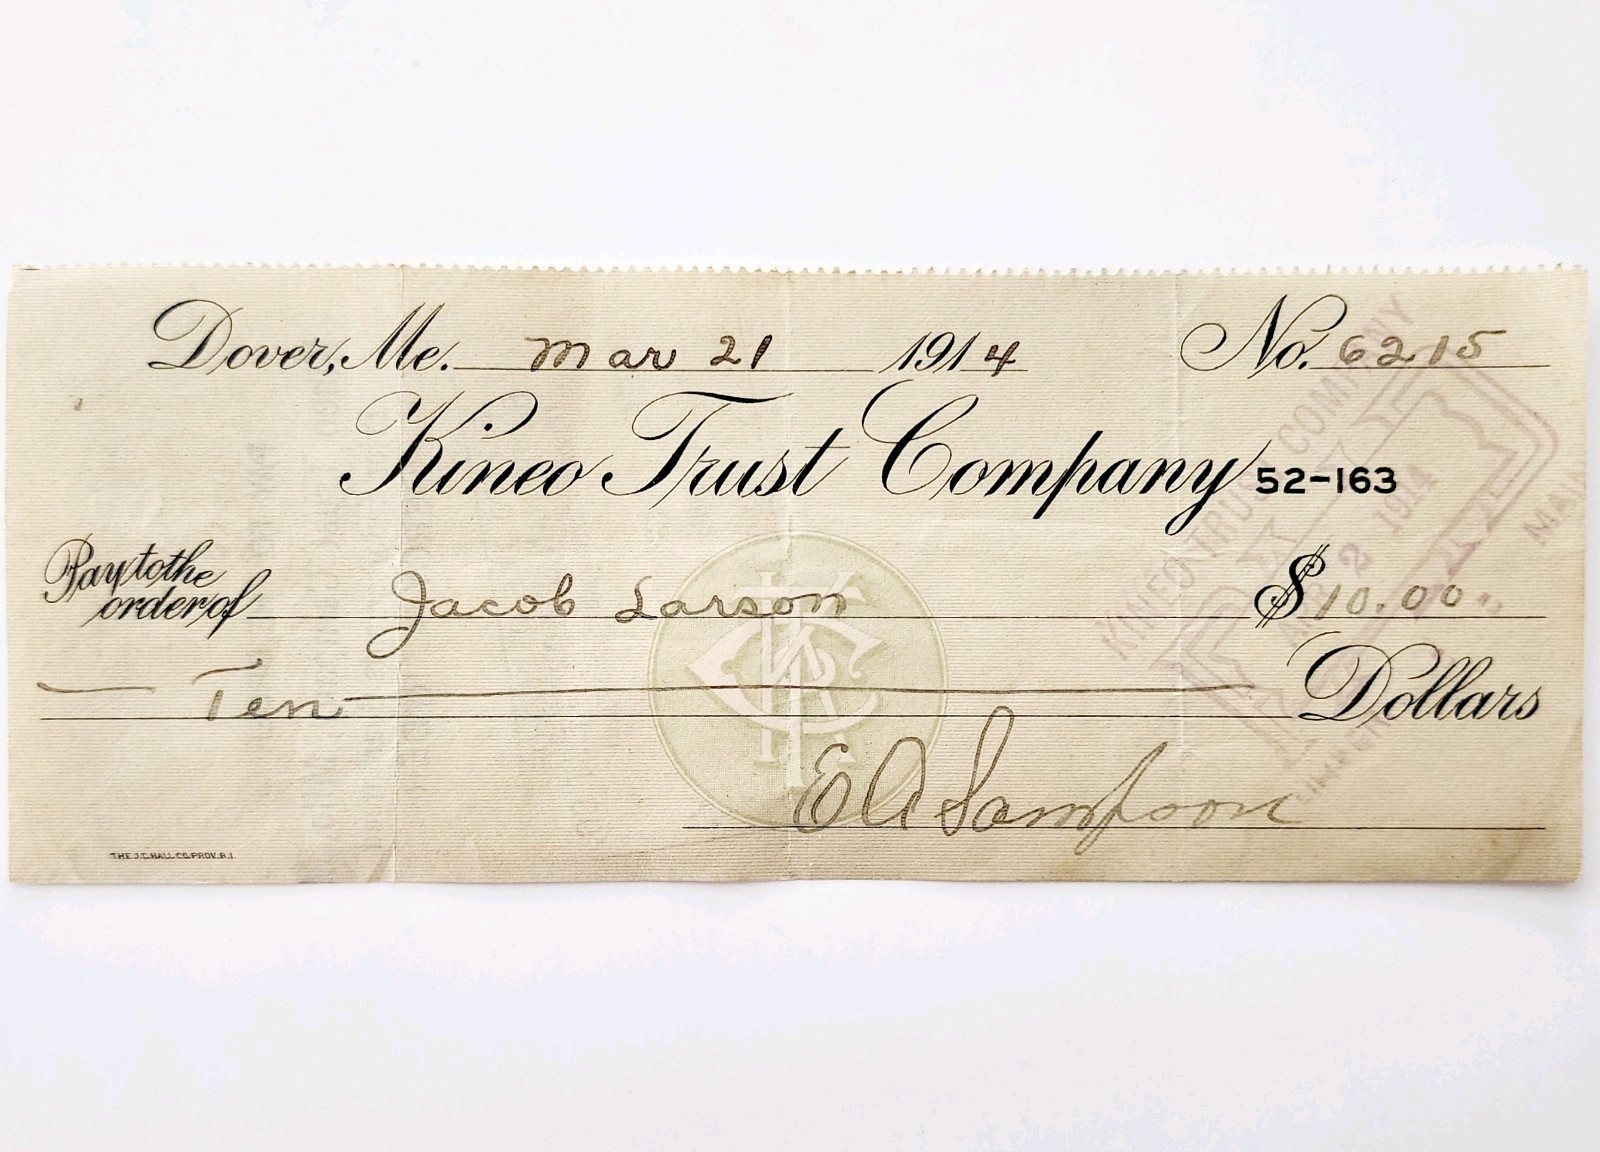 Dover, Me. Mar 21 1914 No. 6215
Kineo Trust Company 52-163
Pay to the
order of Jacob Larson $10.00
Ten Dollars
E A Sampson
THE J.C. HALL CO. PROV. R.I.
KINEO TRUST COMPANY
2 1914
PAID
MAINE